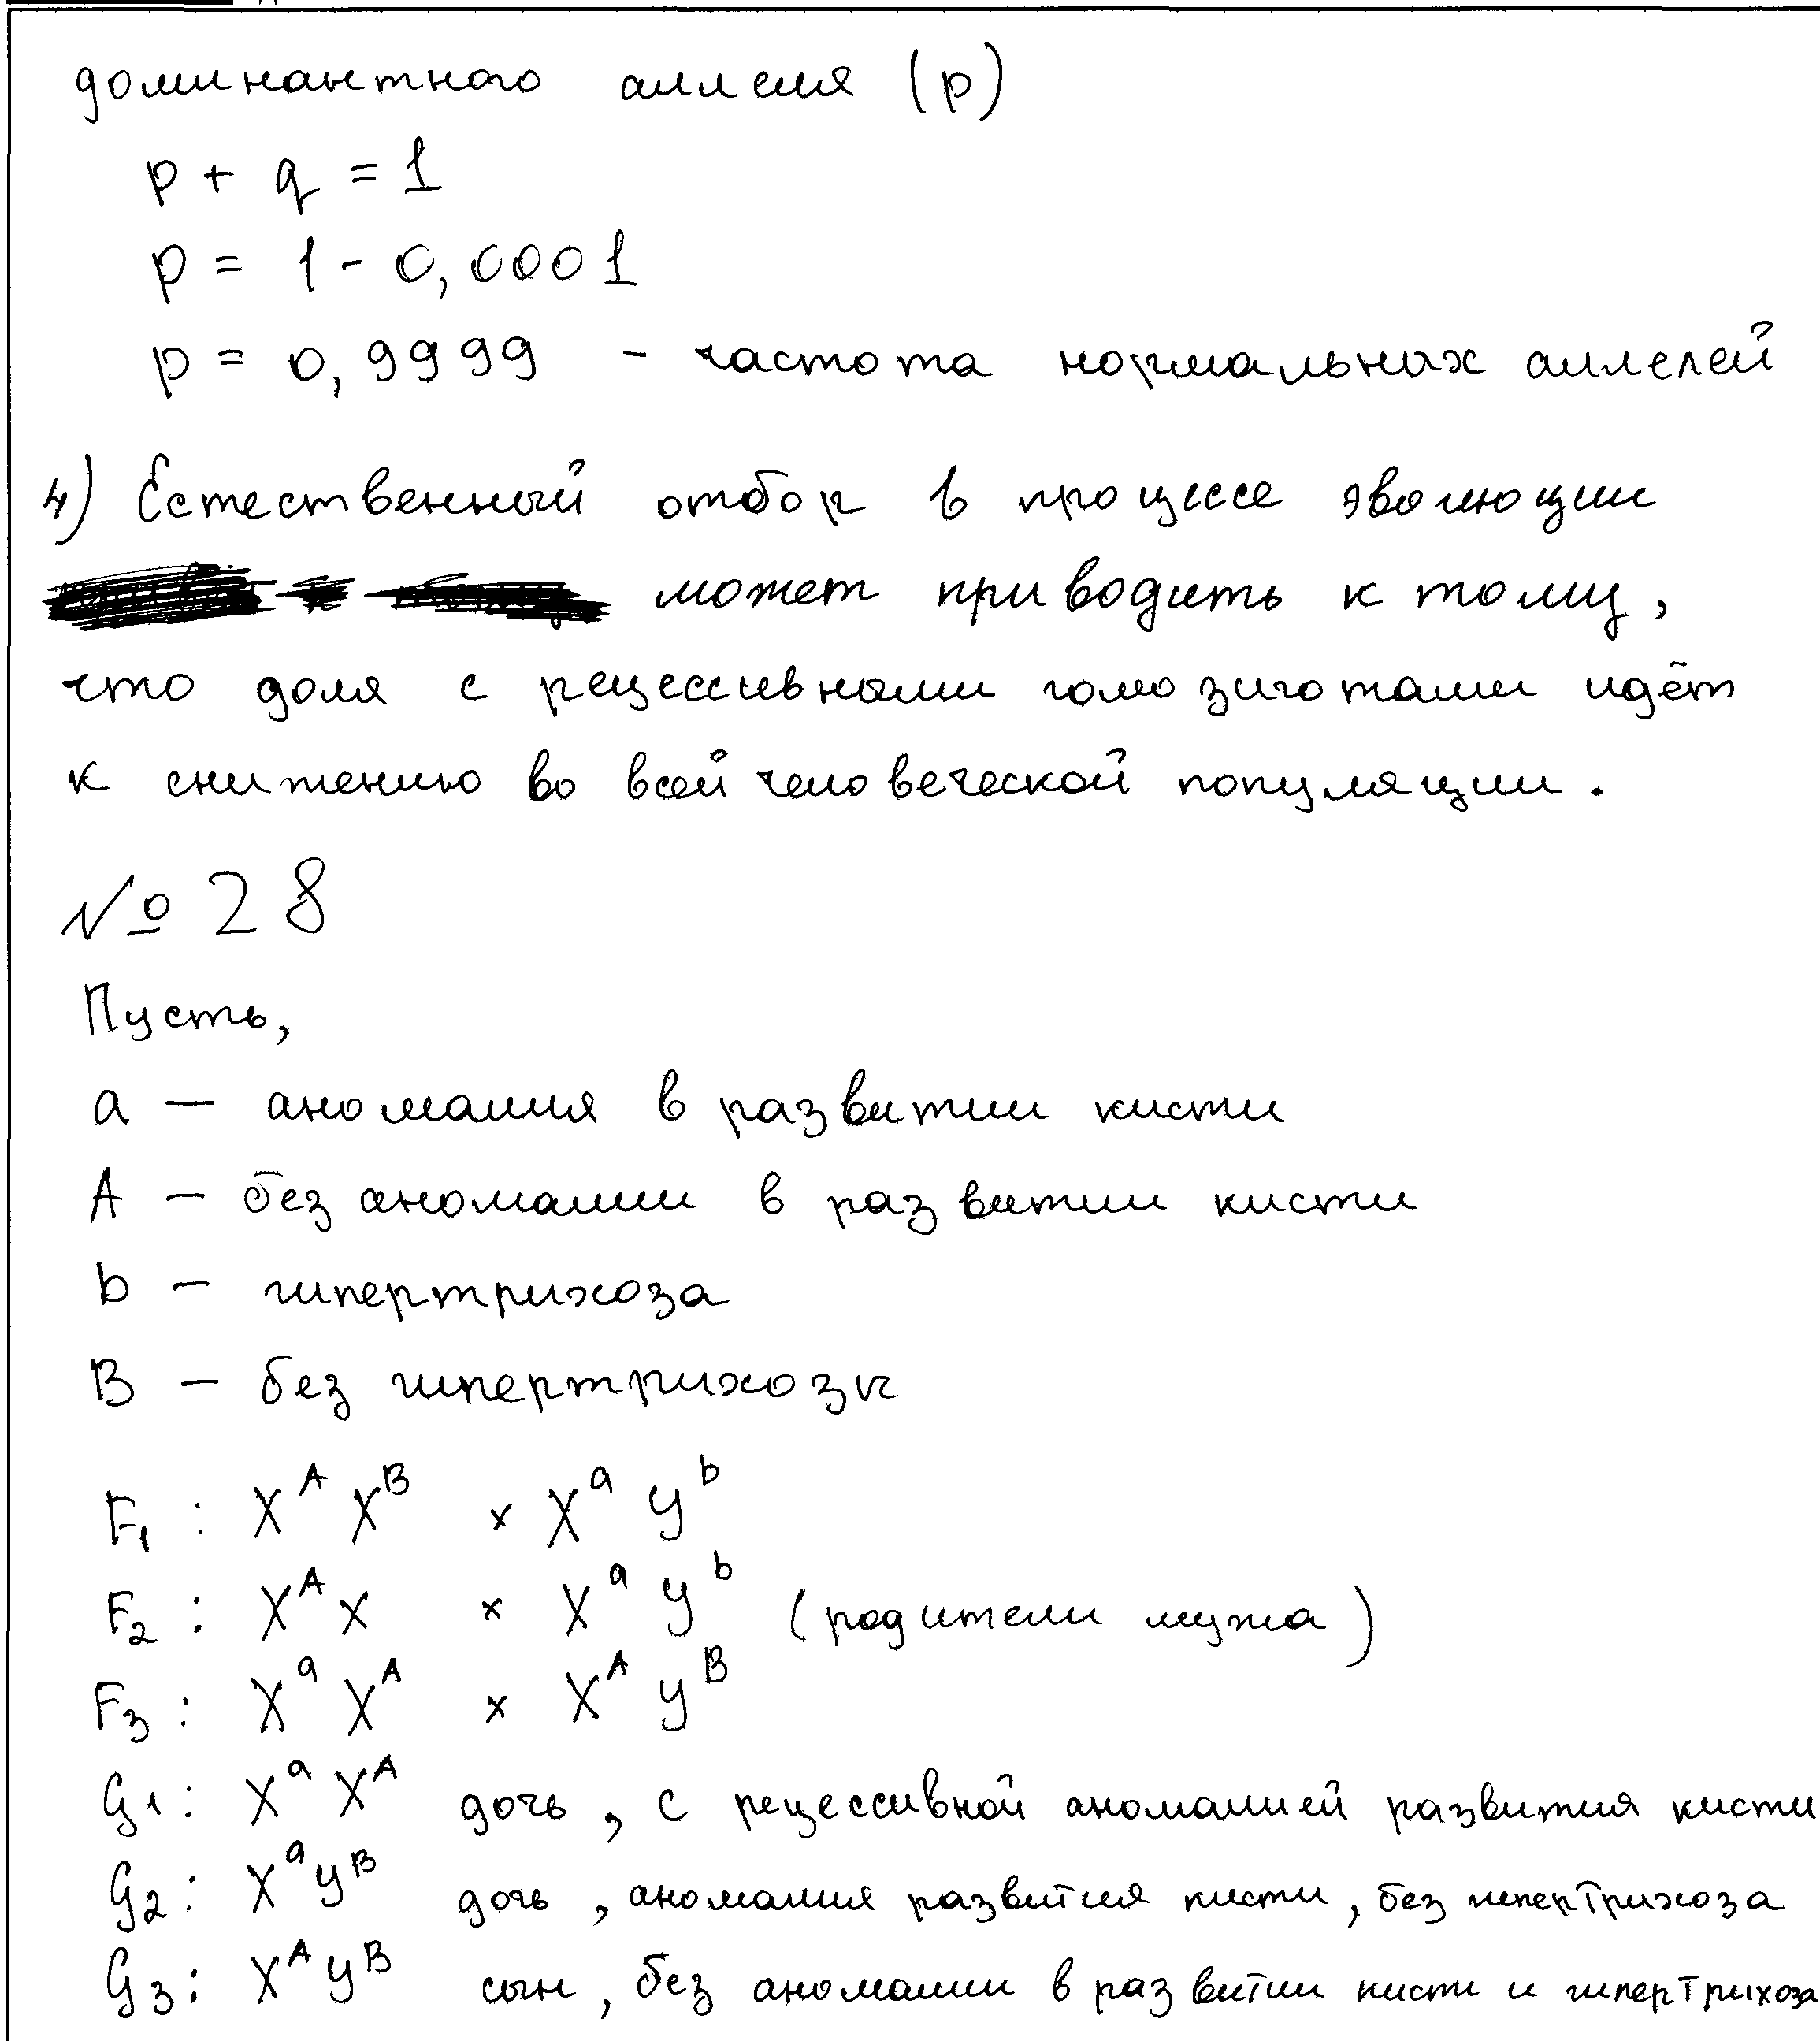 доминантного аллеля (p)
p + q = 1
p = 1 - 0,0001
p = 0,9999 - частота нормальных аллелей
4) Естественный отбор в процессе эволюции
может приводить к тому,
что доля с рецессивными гомозиготами идёт
к снижению во всей человеческой популяции.
№ 28
Пусть,
a — аномалия в развитии кисти
A — без аномалии в развитии кисти
b — гипертрихоза
B — без гипертрихозы
F₁ : Xᴬ Xᴮ × Xᵃ Yᵇ
F₂ : Xᴬ X × Xᵃ Yᵇ (родители мужа)
F₃ : Xᵃ Xᴬ × Xᴬ Yᴮ
G₁ : Xᵃ Xᴬ дочь, с рецессивной аномалией развития кисти
G₂ : Xᵃ Yᴮ дочь, аномалия развития кисти, без гипертрихоза
G₃ : Xᴬ Yᴮ сын, без аномалии в развитии кисти и гипертрихоза